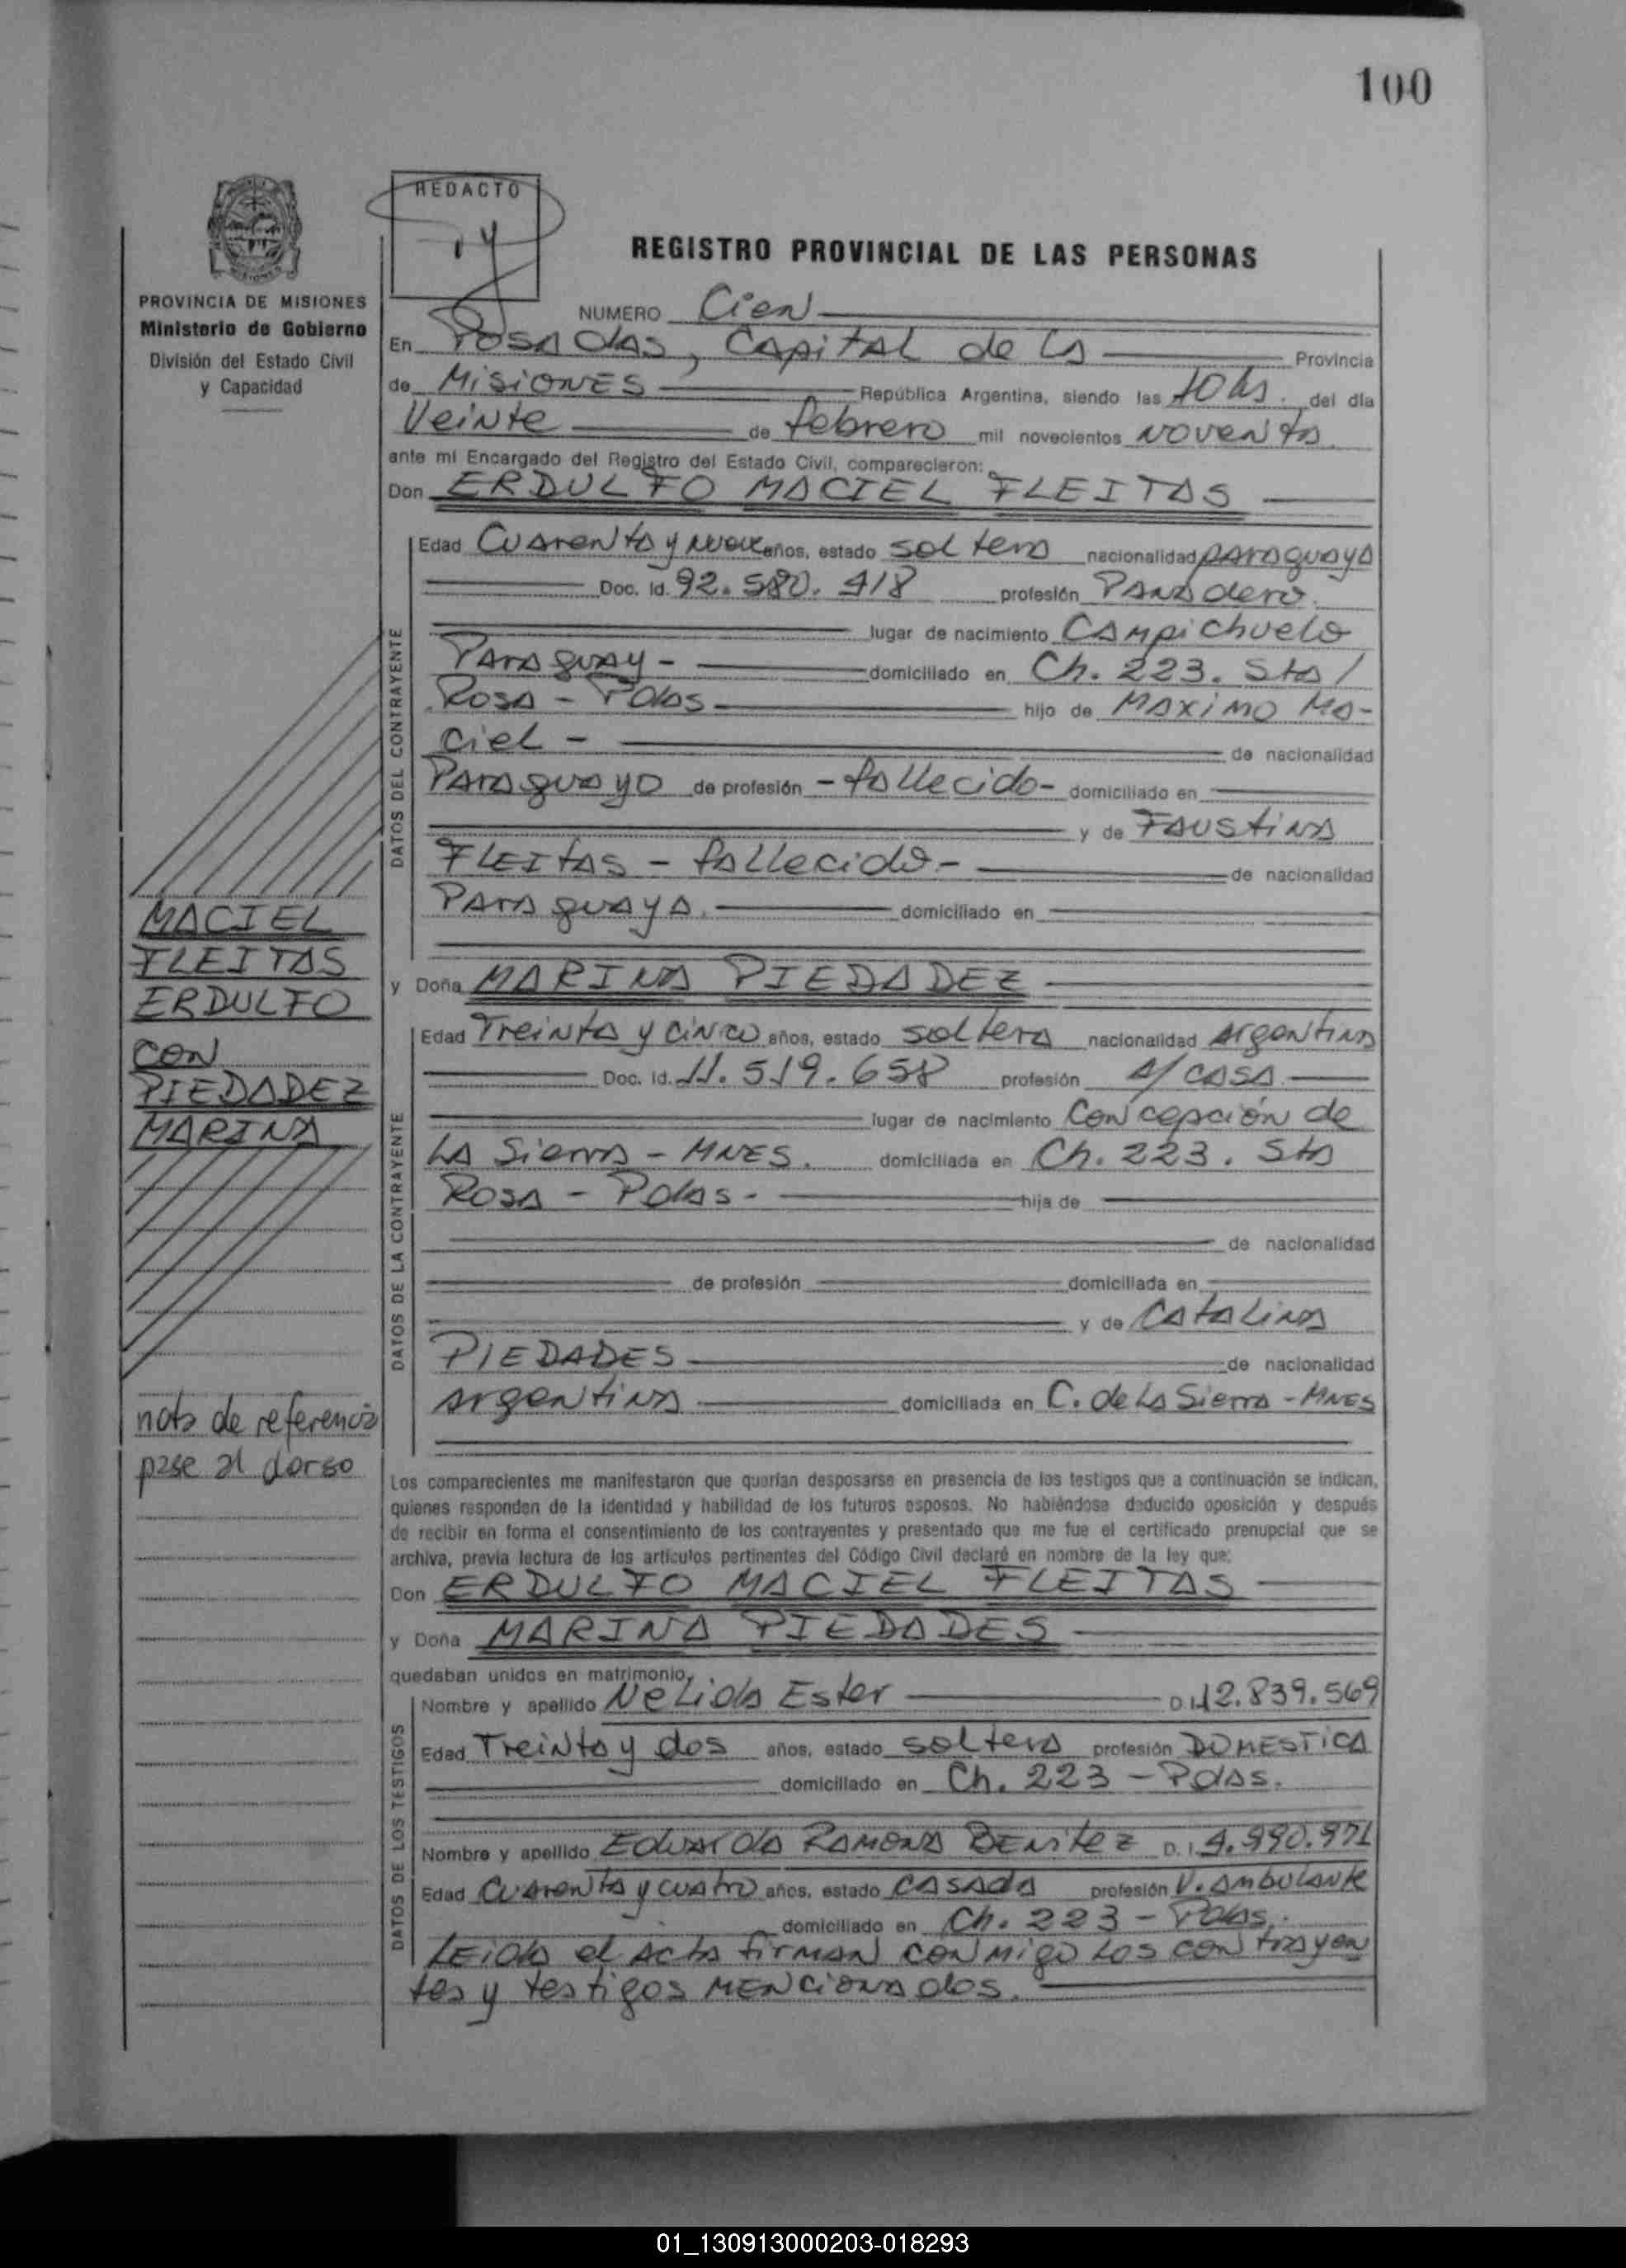 100
REDACTO
REGISTRO PROVINCIAL DE LAS PERSONAS
PROVINCIA DE MISIONES
Ministerio de Gobierno
División del Estado Civil
y Capacidad
NUMERO Cien
En Posadas, Capital de la Provincia
de Misiones República Argentina, siendo las 10 hs. del día
Veinte de febrero mil novecientos noventa
ante mi Encargado del Registro del Estado Civil, comparecieron:
Don ERDULFO MACIEL FLEITAS
DATOS DEL CONTRAYENTE
Edad Cuarenta y nueve años, estado soltero nacionalidad paraguaya
Doc. Id. 92.580.418 profesión Panadero.
lugar de nacimiento Campichuelo
Paraguay - domiciliado en Ch. 223. Sta/
Rosa - Pdas hijo de Maximo Ma-
ciel - de nacionalidad
Paraguayo de profesión - fallecido - domiciliado en
y de Faustina
Fleitas - fallecida - de nacionalidad
Paraguaya. domiciliado en
MACIEL
FLEITAS
ERDULFO
CON
PIEDADEZ
MARINA
y Doña MARINA PIEDADEZ
DATOS DE LA CONTRAYENTE
Edad Treinta y cinco años, estado soltera nacionalidad Argentina
Doc. Id. 11.519.658 profesión A/casa
lugar de nacimiento Concepción de
la Sierra - MNES. domiciliada en Ch. 223. Sta
Rosa - Pdas - hija de
de nacionalidad
de profesión domiciliada en
y de Catalina
PIEDADES de nacionalidad
argentina domiciliada en C. de la Sierra - MNES
nota de referencia
pase al dorso
Los comparecientes me manifestaron que querían desposarse en presencia de los testigos que a continuación se indican,
quienes responden de la identidad y habilidad de los futuros esposos. No habiéndose deducido oposición y después
de recibir en forma el consentimiento de los contrayentes y presentado que me fue el certificado prenupcial que se
archiva, previa lectura de los artículos pertinentes del Código Civil declaré en nombre de la ley que:
Don ERDULFO MACIEL FLEITAS
y Doña MARINA PIEDADES
quedaban unidos en matrimonio,
DATOS DE LOS TESTIGOS
Nombre y apellido Nelida Ester D.I. 12.839.569
Edad Treinta y dos años, estado soltera profesión DOMESTICA
domiciliado en Ch. 223 - Pdas.
Nombre y apellido Eduarda Ramona Benitez D.I. 4.990.971
Edad Cuarenta y cuatro años, estado casada profesión V. Ambulante
domiciliado en Ch. 223 - Pdas.
Leida el acta firman conmigo los contrayen
tes y testigos mencionados.
01_130913000203-018293